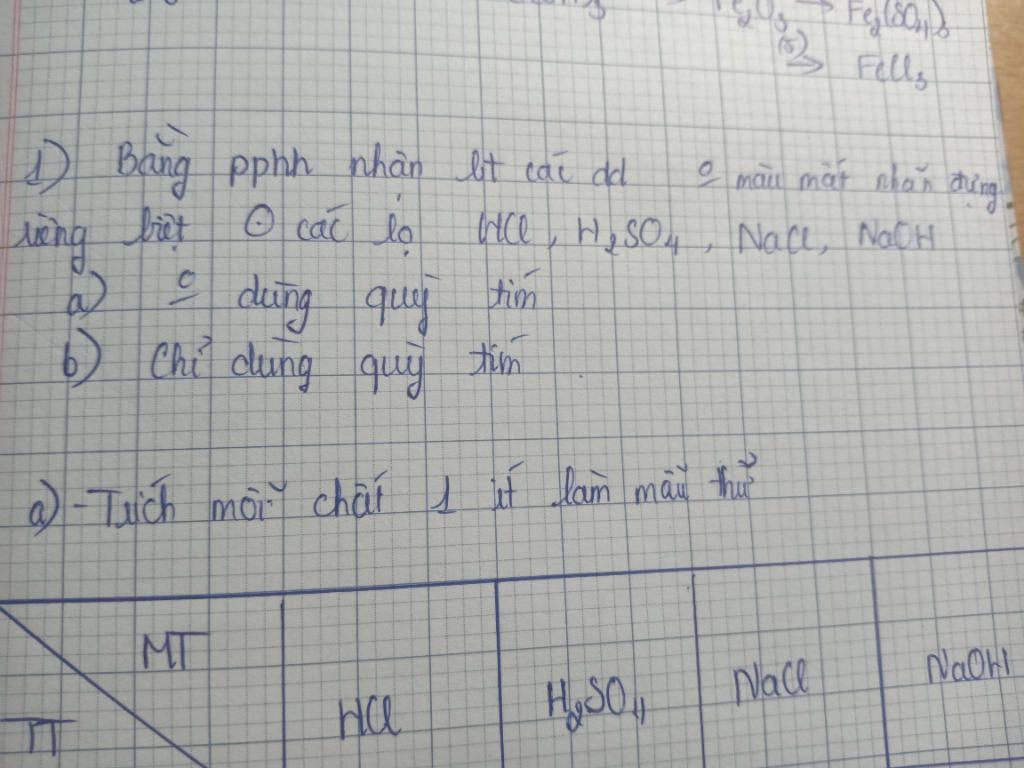 Fe₂O₃ → Fe₂(SO₄)₃
(5) → FeCl₃
1) Bằng pphh nhận bít các dd o màu mất nhãn đựng
riêng biệt ⊙ các lọ HCl, H₂SO₄, NaCl, NaOH
a) o dùng quỳ tím
b) Chỉ dùng quỳ tím
a) - Trích mỗi chất 1 ít làm mẫu thử
MT
HCl H₂SO₄ NaCl NaOH
TT